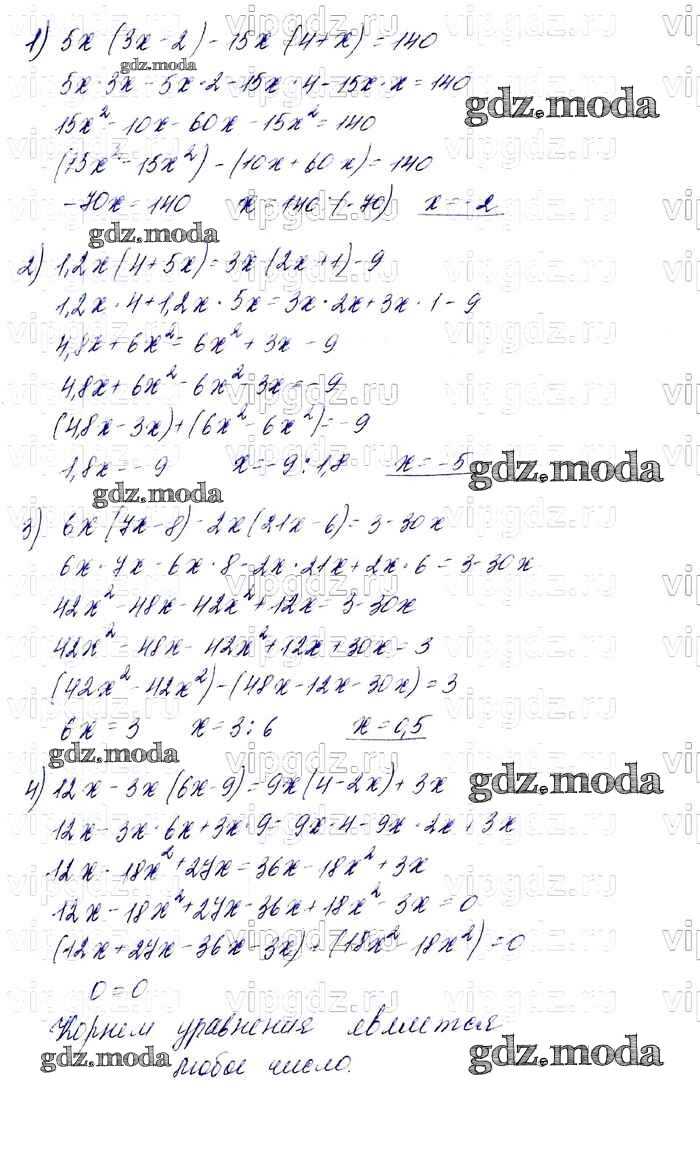 1) 5x (3x - 2) - 15x (4 + x) = 140
gdz.moda
5x · 3x - 5x · 2 - 15x · 4 - 15x · x = 140
gdz.moda
15x² - 10x - 60x - 15x² = 140
(15x² - 15x²) - (10x + 60x) = 140
-70x = 140 x = 140 : (-70) x = -2
gdz.moda
2) 1,2x (4 + 5x) = 3x (2x + 1) - 9
1,2x · 4 + 1,2x · 5x = 3x · 2x + 3x · 1 - 9
4,8x + 6x² = 6x² + 3x - 9
4,8x + 6x² - 6x² - 3x = -9
(4,8x - 3x) + (6x² - 6x²) = -9
1,8x = -9 x = -9 : 1,8 x = -5 gdz.moda
gdz.moda
3) 6x (7x - 8) - 2x (21x - 6) = 3 - 30x
6x · 7x - 6x · 8 - 2x · 21x + 2x · 6 = 3 - 30x
42x² - 48x - 42x² + 12x = 3 - 30x
42x² - 48x - 42x² + 12x + 30x = 3
(42x² - 42x²) - (48x - 12x - 30x) = 3
6x = 3 x = 3 : 6 x = 0,5
gdz.moda
4) 12x - 3x (6x - 9) = 9x (4 - 2x) + 3x gdz.moda
12x - 3x · 6x + 3x · 9 = 9x · 4 - 9x · 2x + 3x
12x - 18x² + 27x = 36x - 18x² + 3x
12x - 18x² + 27x - 36x + 18x² - 3x = 0
(12x + 27x - 36x - 3x) + (18x² - 18x²) = 0
0 = 0
Корнем уравнения является
gdz.moda любое число. gdz.moda
vipgdz.ru